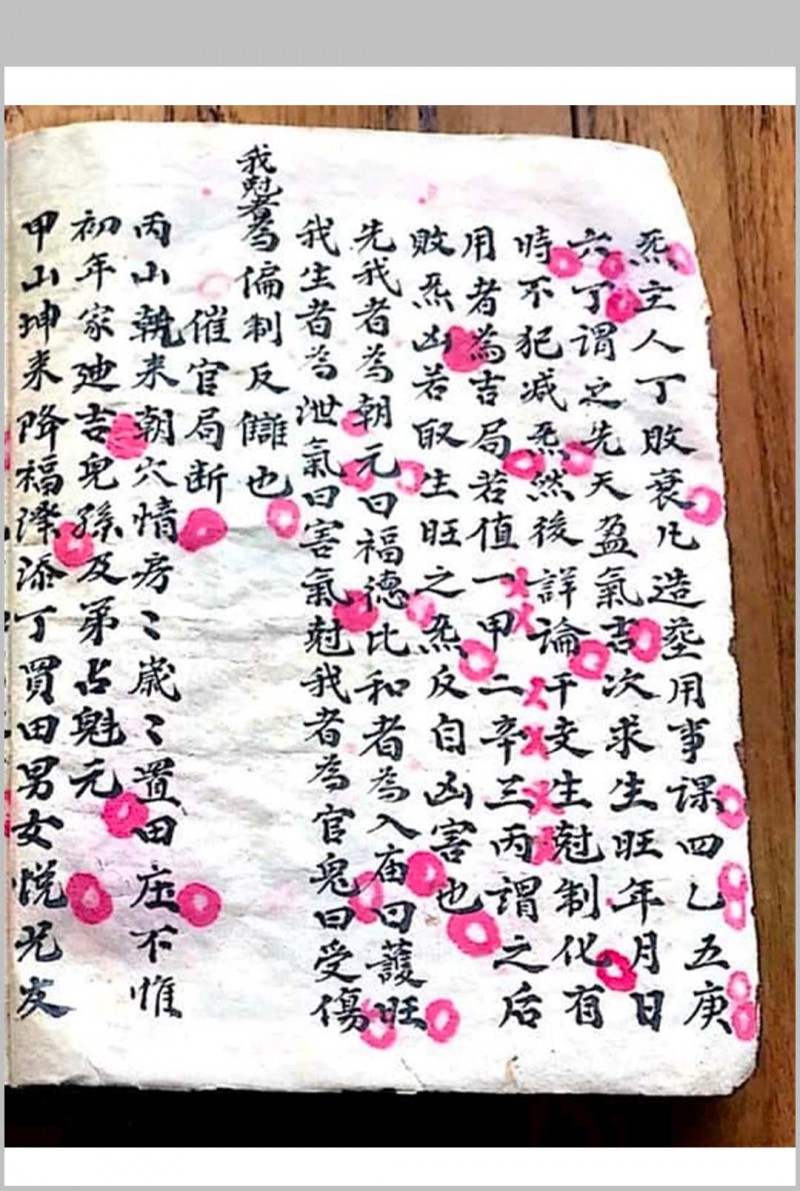 炁主人丁敗衰凡造塟用事課四乙五庚
六丁謂之先天盈氣吉次求生旺年月日
時不犯减炁然後詳論干支生尅制化有
用者為吉局若值一甲二辛三丙謂之后
敗炁凶若取生旺之炁反自凶害也
先我者為朝元曰福德比和者為入庙曰護旺
我生者為泄氣曰害氣尅我者為官鬼曰受傷
我尅者為偏制反讎也
催官局断
丙山 来朝穴情房〻歲〻置田庄不惟
初年家迪吉兒孫及第占魁元
甲山坤来降福 添丁買田男女悦兄友